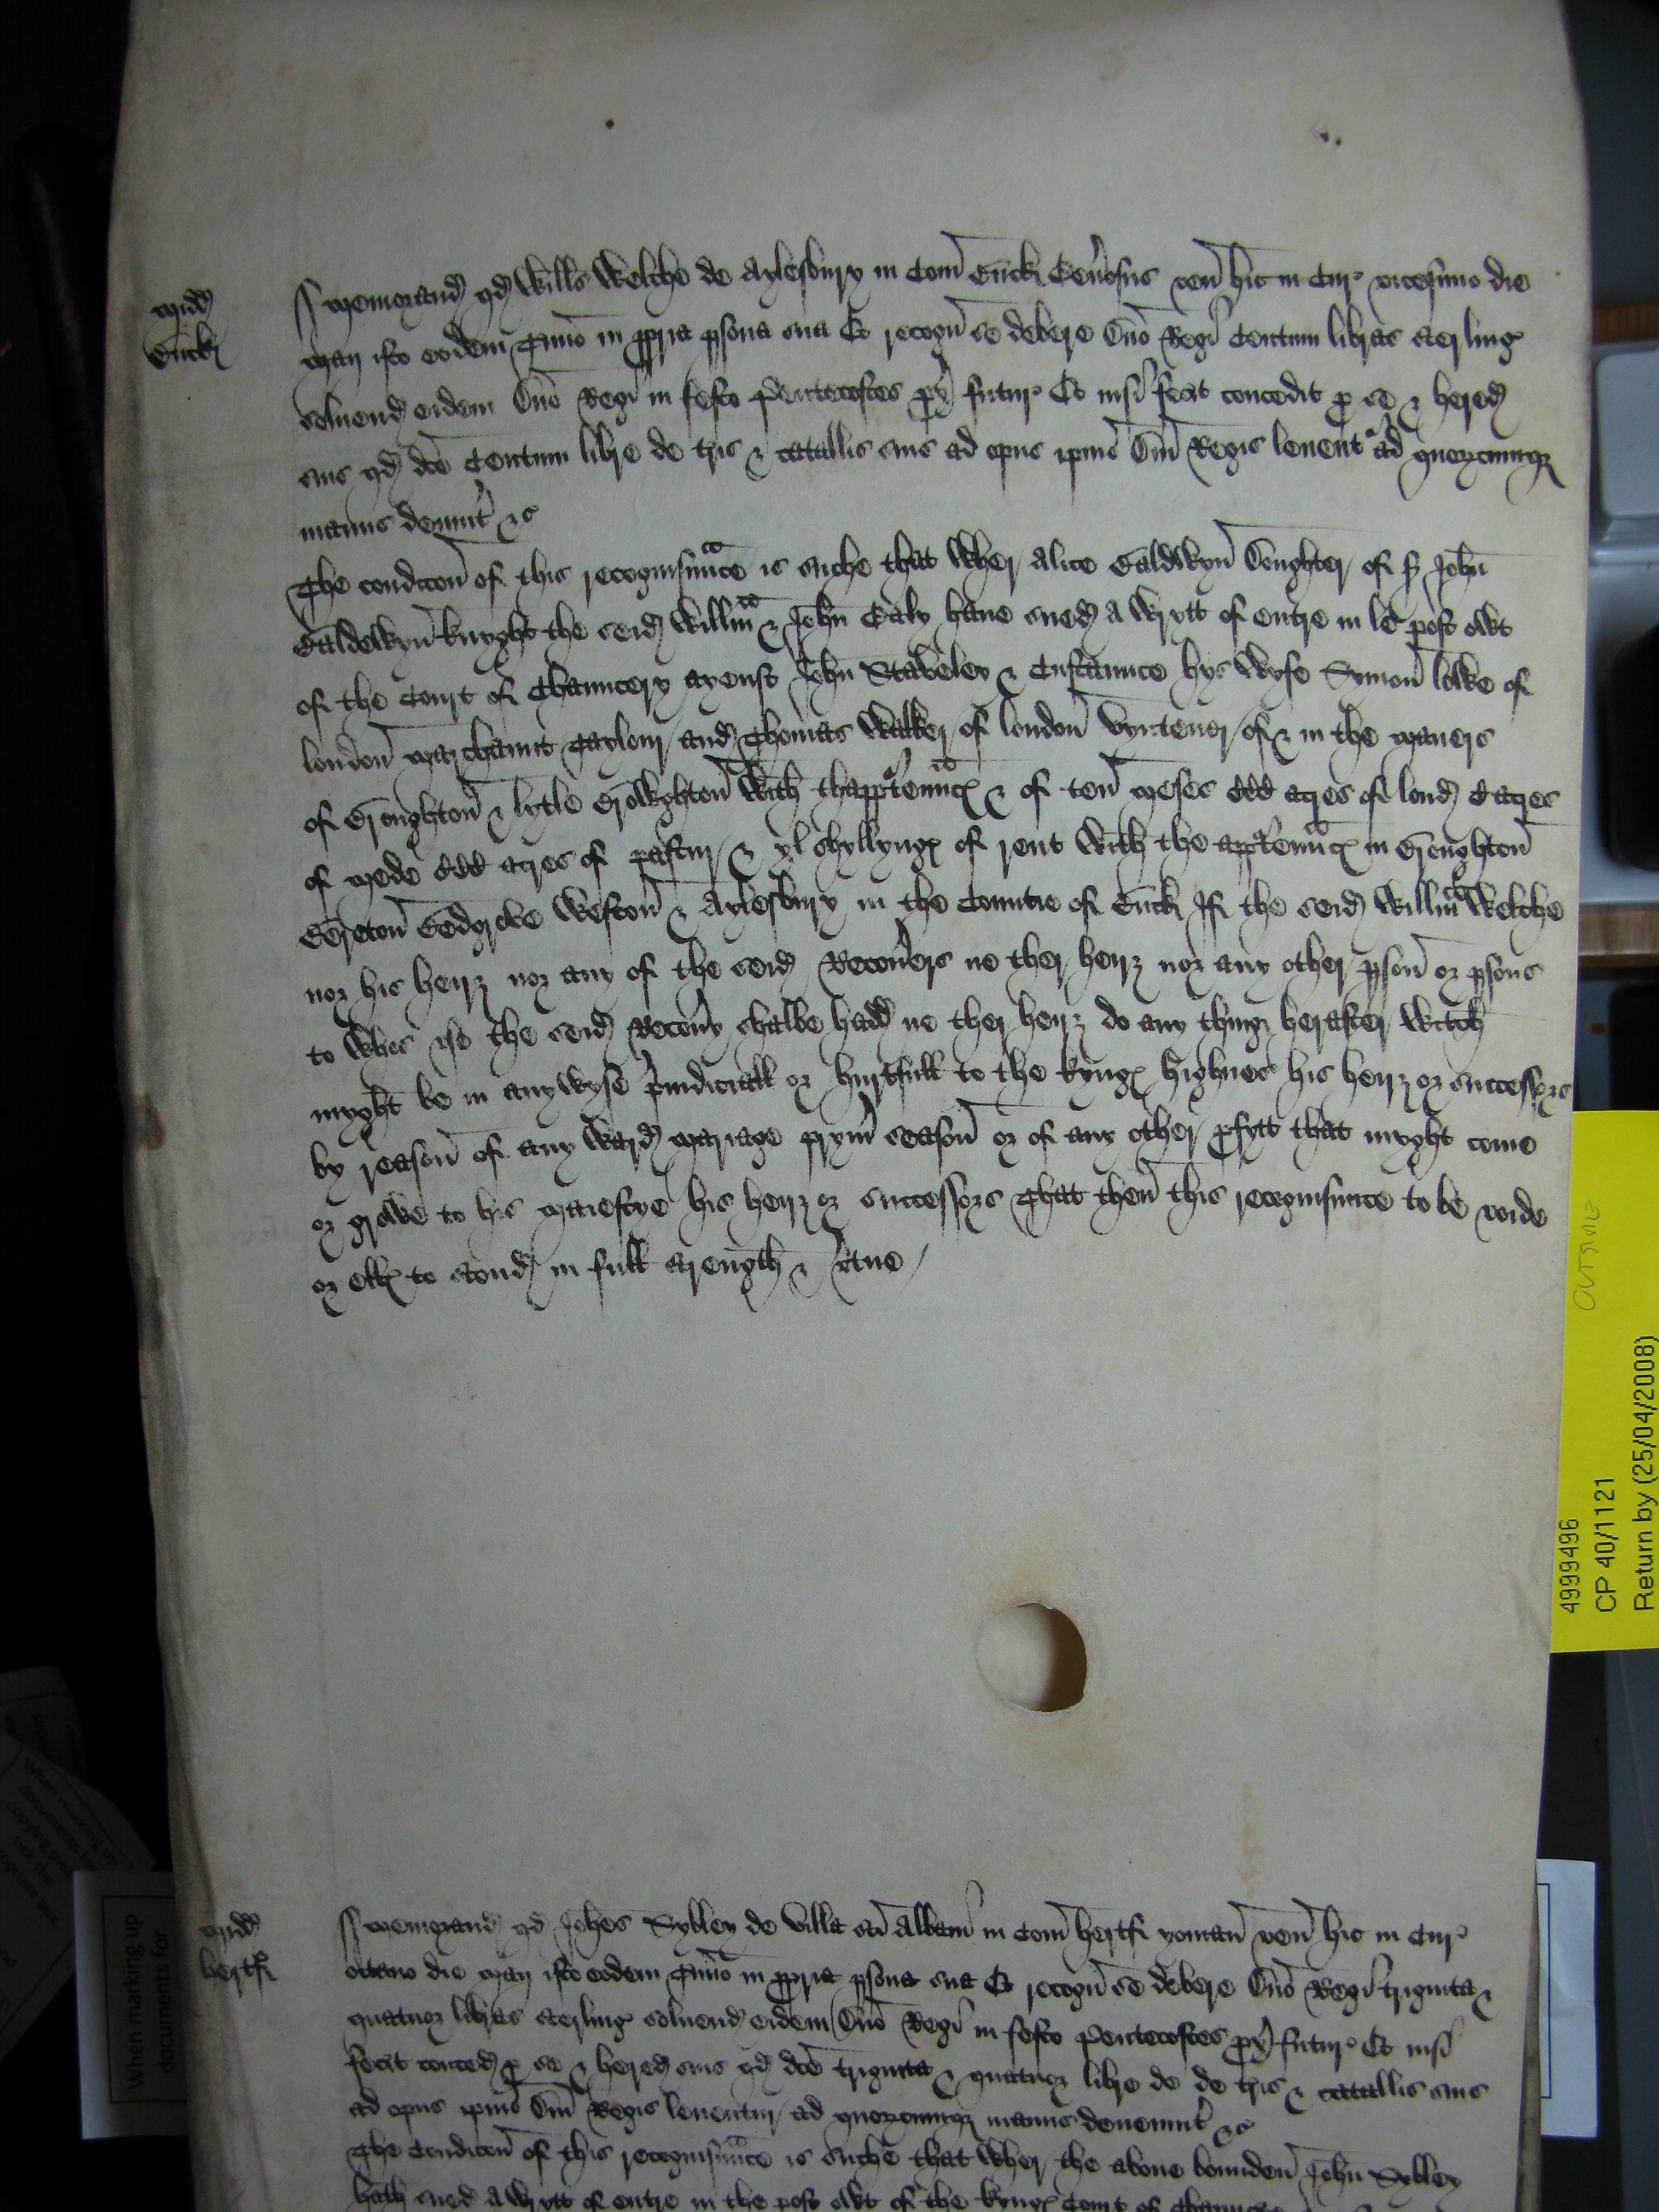 Midd
Buck
Memorand qd Wills Welche de Aylesbury in Com Buck Generosus ven hic in Cur vicesimo die
May isto eodem Termino in propria psona sua Et recogn se debere Dno Regi Centum libras sterling
soluend eidem Dno Regi in festo Pentecostes px futur Et nisi fecit concedit p se & hered
suis qd dce Centum libre de tris & catallis suis ad opus ipius Dni Regis levent ad quorcumq
manus devenit &c
The condicon of this recognisunce is suche that Wher Alice Baldwyn Doughter of Sr John
Baldewyn knyght the seid Willm & John Baly have sued a Wrytt of entre in le post owt
of the Court of Chauncery ayenst John Staveley & Custaunce hys Wyfe Symon lowe of
london Marchaunt Taylour and Thomas Walker of london Vyntener of & in the Maners
of Broughton & lytle Browghton With thapptennc & of ten Meses CCC acres of lond C acres
of Mede CCC acres of pastur & xl shyllyngs of rent With the apptennc in Broughton
BErton Bedgrove Weston & Aylesbury in the Countie of Buck If the seid Willm Welche
nor his heirz nor any of the seid Recovers ne ther heirz nor any other pson or psons
to Whos use the seid Recovy shalbe hadd ne ther heirz do any thing herafter Witch
myght be in any Wyse piudiciall or hurtfull to the kyngs highnes his heirz or successors
by reason of any Ward Mariage prym season or of any other pfytt that myght come
or growe to his Maiestye his heirz or successors That then this recognisunce to be voide
or ells to stond in full strength & vtue
Midd
hertf
Memorand qd Johes Sybley de Villa sci Albani in Com hertf yoman ven hic in Cur
octavo die May isto eodem Termino in propria psona sua Et recogn se debere Dno Regi triginta &
quatuor libras sterling soluend eidem Dno Regi in festo Pentecostes px futur Et nisi
fecit conced p se & hered suis qd dce triginta & quatuor libre de de tris & catallis suis
ad opus ipius Dni Regis leventur ad quorcumq manus devenint &c
The Condicon of this recognisunce is suche that Wher the above bounden John Sybley
hath sued a Wrytt of entre in the post owt of the kyngs Court of Chauncery
OUTSIZE
4999496
CP 40/1121
Return by (25/04/2008)
When marking up
documents for